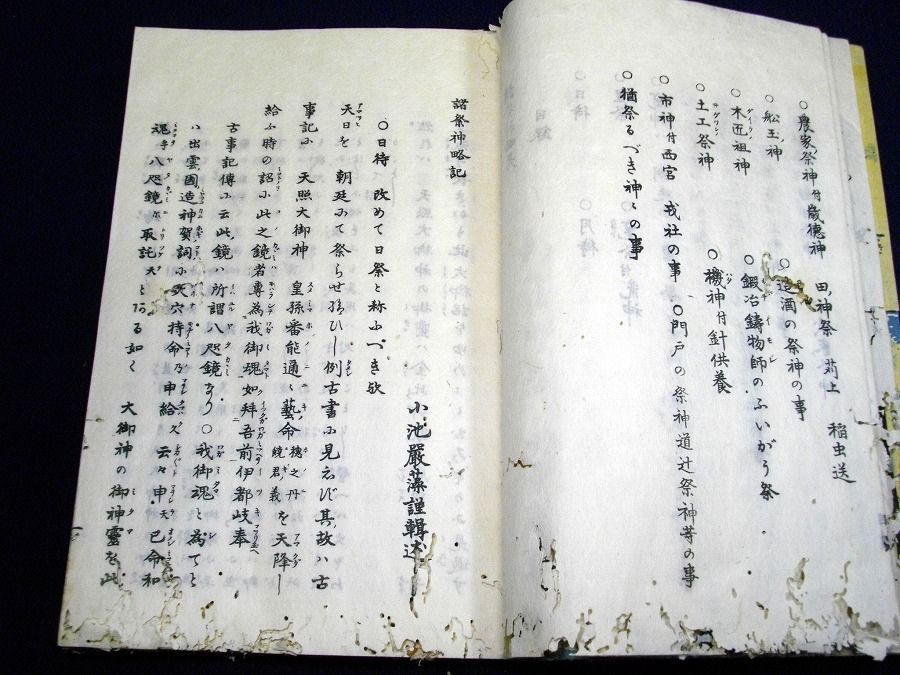 ○農家祭神付歳徳神 田神祭 苅上 稲虫送
○舩玉神 ○造酒の祭神の事
○木匠祖神 ○鍛冶鋳物師のふいがう祭
○土工祭神 ○機神付針供養
○市神付西宮 戎社の事 ○門戸の祭神道辻祭神等の事
○猶祭るべき神〻の事
諸祭神略記
小池嚴藻謹輯述
○日待 改めて日祭と称ふべき欤
天日を 朝廷にて祭らせ給ひし例古書に見えず其故ハ古
事記に 天照大御神 皇孫番能迩〻藝命を天降し
給ふ時の詔に此之鏡者専為我御魂如拝吾前伊都岐奉
古事記傳に云此鏡ハ所謂八咫鏡なり○我御魂と為てと
ハ出雲國造神賀詞に 穴持命乃申給久云々申天己命和
魂乎八咫鏡尓取託天とある如く 大御神の御神靈を此